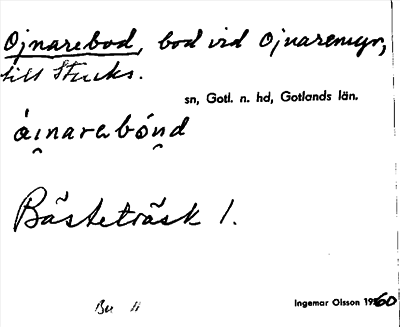 Ojnarebod, bod vid Ojnaremyr,
till Stucks.
sn, Gotl. n. hd, Gotlands län.
Bästeträsk 1.
Bu H
Ingemar Olsson 1960